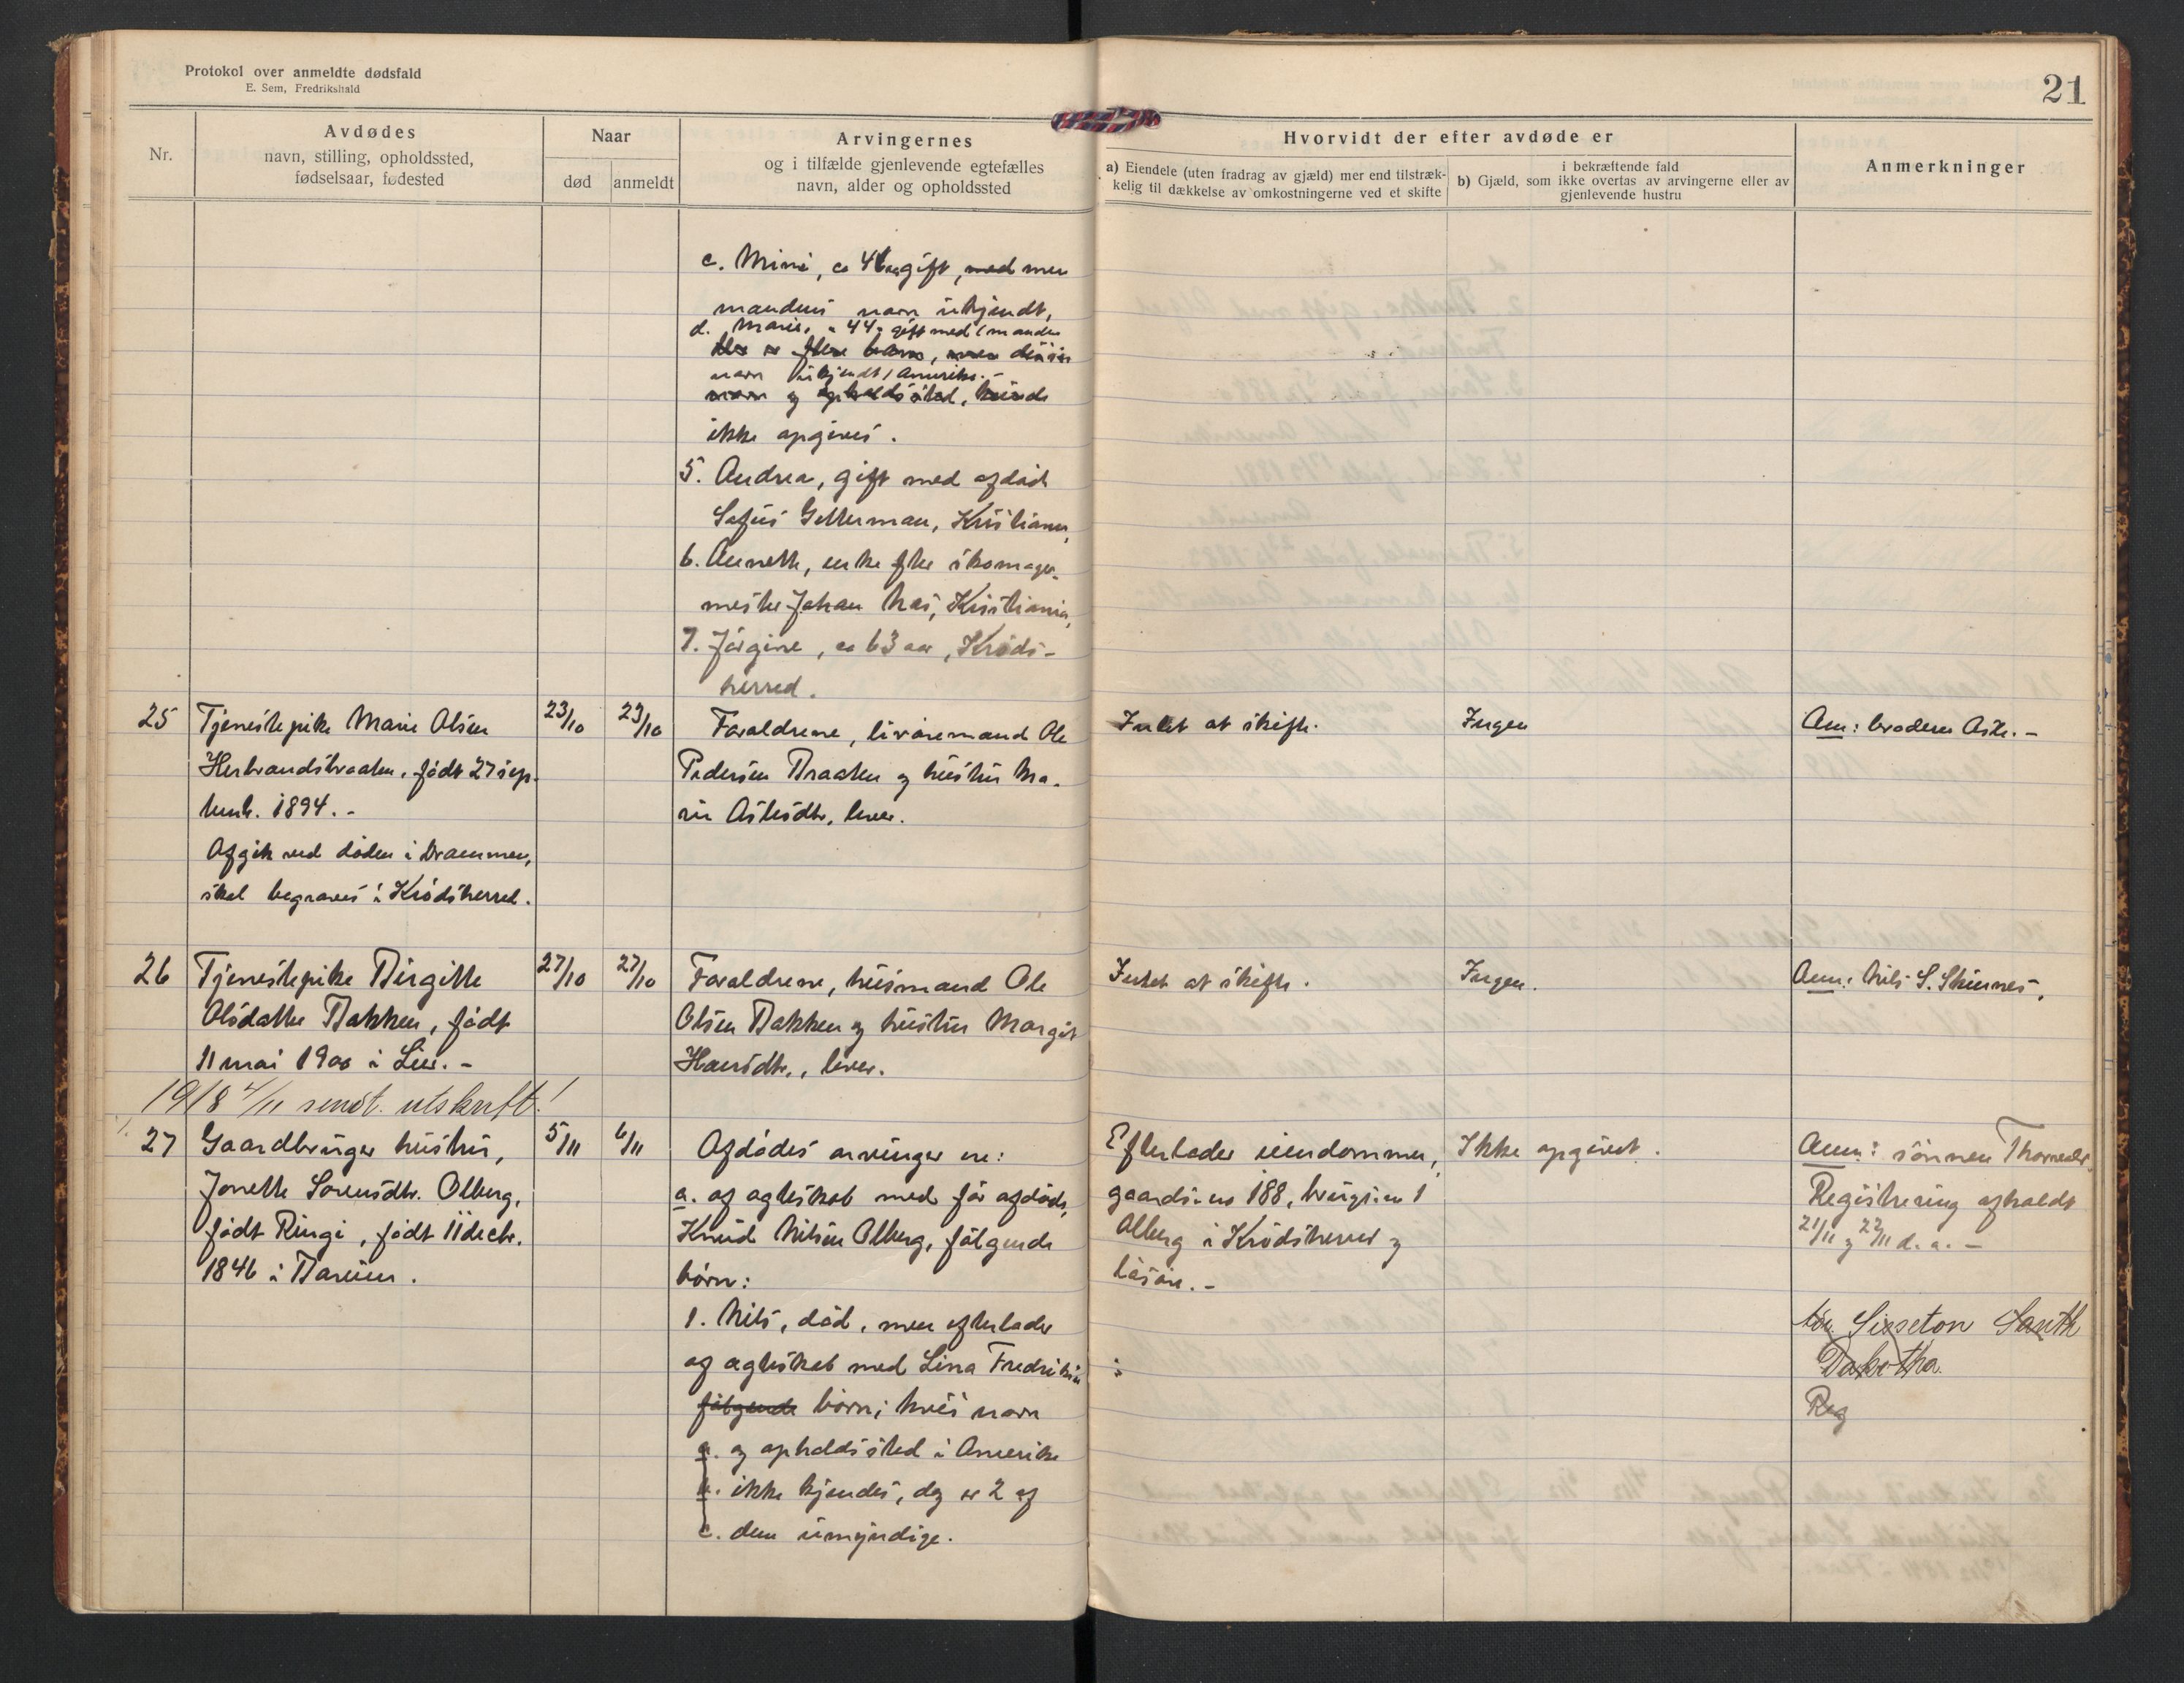 Protokol over anmeldte dødsfald
E. Sem, Fredrikshald
21
Nr.
Avdødes
navn, stilling, opholdssted,
fødselsaar, fødested
Naar
død
anmeldt
Arvingernes
og i tilfælde gjenlevende egtefælles
navn, alder og opholdssted
Hvorvidt der efter avdøde er
a) Eiendele (uten fradrag av gjæld) mer end tilstræk-
kelig til dækkelse av omkostningerne ved et skifte
i bekræftende fald
b) Gjæld, som ikke overtas av arvingerne eller av
gjenlevende hustru
Anmerkninger
c. Mina, ca 46 gift, med men
mandens navn ukjendt,
d. Marie, " 44 " gift med (manden
der er flere børn, men disses
navn ukjendt) Amerika. -
navn og opholdssted, kunde
ikke opgives.
5. Andrea, gift med afdøde
Sofus Gellerman, Kristiania,
6. Annette, enke efter skomager-
mester Johan Næs, Kristiania,
7. Jørgine, ca 63 aar, Krøds-
herred.
25
Tjenestepike Marie Olsen
Herbrandsbraaten, født 27 sep-
temb. 1894. -
Afgik ved døden i Drammen,
skal begraves i Krødsherred.
23/10
29/10
Forældrene, livøremand Ole
Pedersen Braaten og hustru Ma-
rie Aslesdtr, lever.
Intet at skifte.
Ingen
Anm: broderen Asle. -
26
Tjenestepike Birgitte
Olsdatter Bakken, født
11 mai 1900 i Lier. -
27/10
27/10
Forældrene, husmand Ole
Olsen Bakken og hustru Margit
Hansdtr., lever.
Intet at skifte.
Ingen.
Anm: Nils S. Skinnes,
1918 4/11 sendt. utskrift!
27
Gaardbruger hustru,
Jonette Sorensdtr. Olberg,
født Ringi, født 11 decbr.
1846 i Bærum.
5/11
6/11
Afdødes arvinger er:
a. af ægteskab med før afdøde,
Knud Nilsen Olberg, følgende
børn:
1. Nils, død, men efterlader
af ægteskab med Lina Fredriksen
følgende børn; hvis navn
a. og opholdssted i Amerika
b. ikke kjendes, dog er 2 af
c. dem umyndige.
Efterlader eiendommen,
gaards-no 188, brugs-no 1
Olberg i Krødsherred og
løsøre. -
Ikke opgivet.
Anm: sønnen Thorvald.
Registrering afholdt
21/11 og 22/11 d. a. -
Sisseton South
Dakotha.
Reg